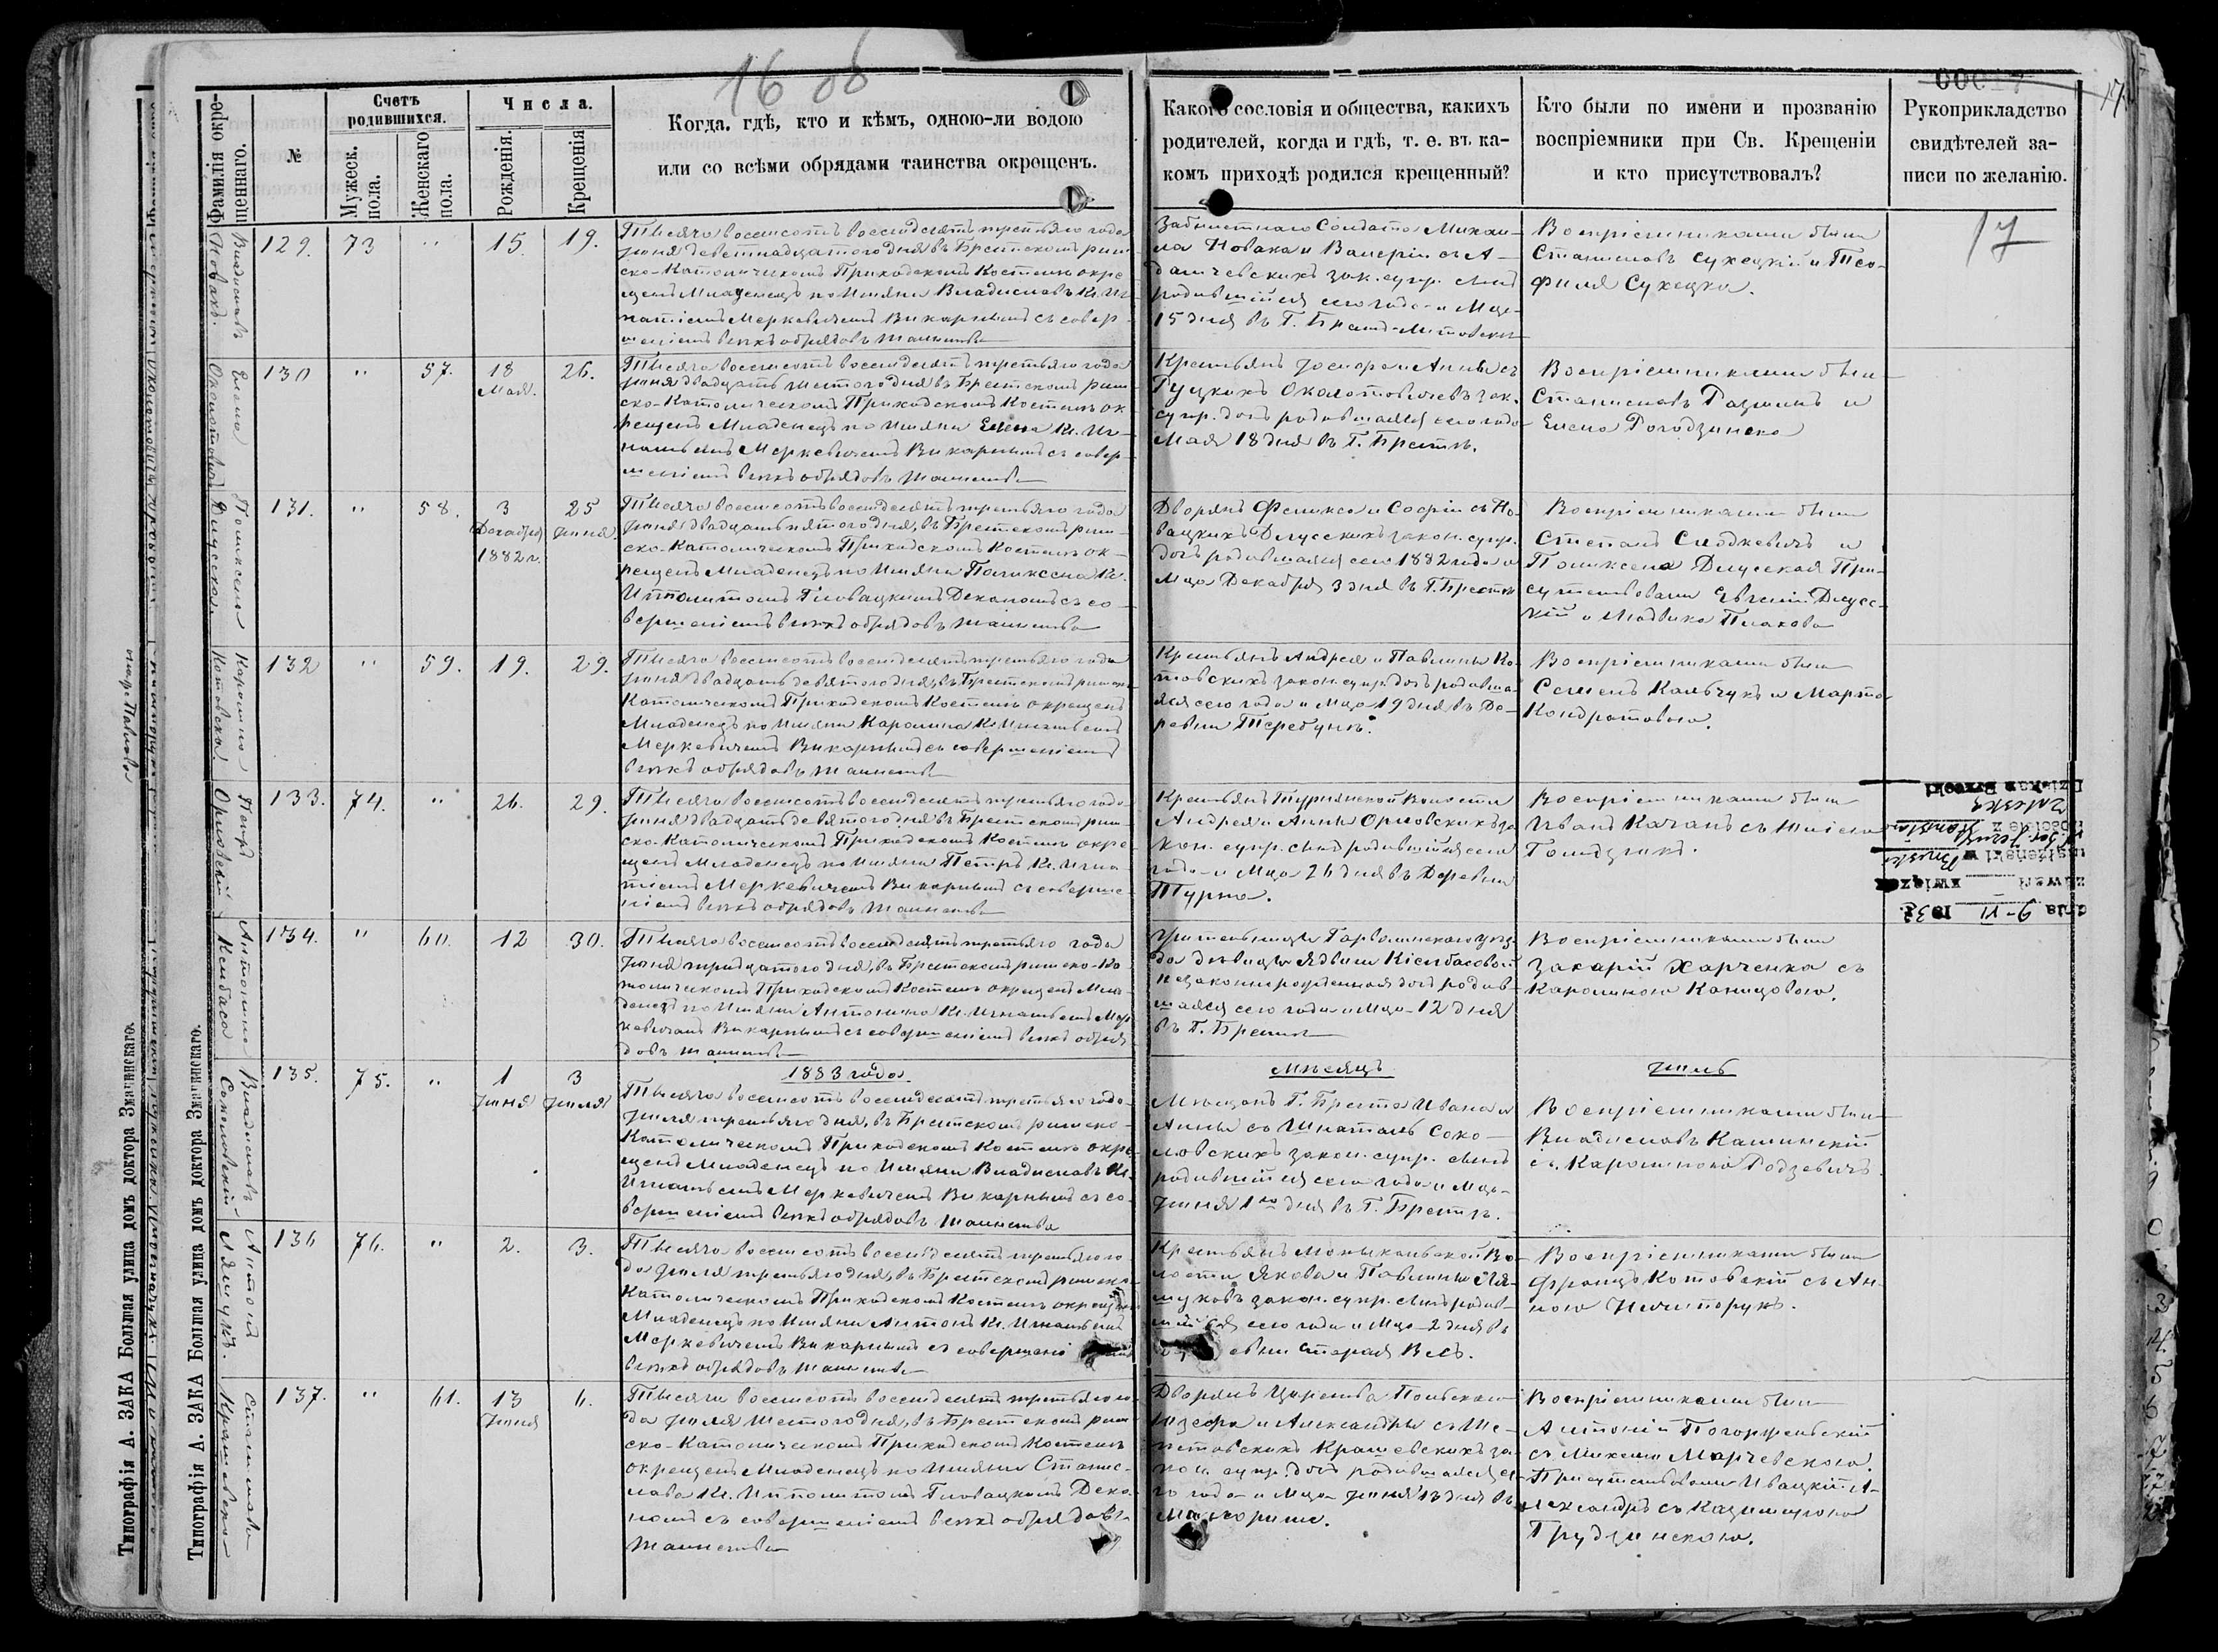 16 об
17.
17
Фамилія окре-
щеннаго.
№
Счетъ
родившихся.
Мужеск.
пола.
Женскаго
пола.
Числа.
Рожденія.
Крещенія
Когда, гдѣ, кто и кѣмъ, одною-ли водою
или со всѣми обрядами таинства окрещенъ.
Какого сословія и общества, какихъ
родителей, когда и гдѣ, т. е. въ ка-
комъ приходѣ родился крещенный?
Кто были по имени и прозванію
воспріемники при Св. Крещеніи
и кто присутствовалъ?
Рукоприкладство
свидѣтелей за-
писи по желанію.
Владиславъ
Новакъ.
129. 73 " 15. 19.
Тысяча восемсотъ восемдесятъ третьяго года
Іюня девятнадцатого дня въ Брестскомъ рим-
ско-Католическомъ Приходскомъ Костелѣ окре
щенъ Младенецъ по Имяни Владиславъ Кс. Иг-
натіемъ Меркевичемъ Викарнымъ съ совер-
шеніемъ всѣхъ обрядовъ таинства
Солдата Михаи-
ла Новака и Валеріи съ А-
дамчевскихъ зак. супр. сынъ
родившійся сего года и Мца
15 дня въ Г. Брестъ-Литовскѣ
Воспріемниками были
Станиславъ Сухецкій и Тео-
филя Сухецка.
Елена
130 " 57. 18 26.
Мая.
Тысяча восемсотъ восемдесятъ третьяго года
Іюня двадцать шестого дня въ Брестскомъ рим-
ско-Католическомъ Приходскомъ Костелѣ ок
рещенъ Младенецъ по Имяни Елена Кс. Иг-
натьемъ Меркевичемъ Викарнымъ съ совер-
шеніемъ всѣхъ обрядовъ таинства
Крестьянъ и Анны съ
зак.
супр. дочь родившаяся сего года
Мая 18 дня въ Г. Брестѣ.
Воспріемниками были
Станиславъ и
Елена Рогодзинска
Поликсена
Длусская
131. " 58. 3 25
Декабря Іюня.
1882 г.
Тысяча восемсотъ восемдесятъ третьяго года
Іюня двадцать пятого дня, въ Брестскомъ рим-
ско-Католическомъ Приходскомъ Костелѣ ок-
рещенъ Младенецъ по Имяни Поликсена Кс.
Ипполитомъ Гловацкимъ Деканомъ съ со-
вершеніемъ всѣхъ обрядовъ таинства
Дворянъ Феликса и Софіи съ Но-
вацкихъ Длусскихъ закон. супр.
дочь родившаяся сего 1882 года и
Мца Декабря 3 дня въ Г. Брестѣ
Воспріемниками были
Степанъ и
Поликсена Длусская При-
сутствовали Евгеній Длусс-
кій и Людвика
Каролина
Котовска
132 " 59. 19. 29.
Тысяча восемсотъ восемдесятъ третьяго года
Іюня двадцать девятого дня, въ Брестскомъ римско-
Католическомъ Приходскомъ Костелѣ окрещенъ
Младенецъ по Имяни Каролина Кс. Игнатьемъ
Меркевичемъ Викарнымъ съ совершеніемъ
всѣхъ обрядовъ таинства
Крестьянъ Андрея и Павлины Ко-
товскихъ закон. супр. дочь родивша-
яся сего года и Мца 19 дня въ Де-
ревни Теребунь.
Воспріемниками были
Семенъ Кальчукъ и Марта
Кондратовою.
Петръ
Орловскій
133. 74. " 26. 29.
Тысяча восемсотъ восемдесятъ третьяго года
Іюня двадцать девятого дня въ Брестскомъ рим-
ско-Католическомъ Приходскомъ Костелѣ окре-
щенъ Младенецъ по Имяни Петръ Кс. Игна-
тіемъ Меркевичемъ Викарнымъ съ соверше-
ніемъ всѣхъ обрядовъ таинства
Крестьянъ Турнянской Волости
Андрея и Анны Орловскихъ за
кон. супр. сынъ родившійся сего
года и Мца 26 дня въ Деревни
Турна.
Воспріемниками были
Иванъ Качанъ съ
Антонина
Кембаса
134. " 60. 12 30.
Тысяча восемсотъ восемдесятъ третьяго года
Іюня тридцатого дня, въ Брестскомъ римско-Ка
толическомъ Приходскомъ Костелѣ окрещенъ Мла-
денецъ по Имяни Антонина Кс. Игнатьемъ Мер-
кевичемъ Викарнымъ съ совершеніемъ всѣхъ обря-
довъ таинства
Гарволинскаго уѣз-
да дѣвицы Ядвиги Кіелбасовой
незаконнорожденная дочь родив-
шаяся сего года и Мца 12 дня
въ Г. Брестѣ
Воспріемниками были
Захарій Харченка съ
Каролиною
1883 года. Мѣсяцъ Іюль
Владиславъ
Соколовскій
135. 75. " 1 3
Іюня Іюля
Тысяча восемсотъ восемдесятъ третьяго года
Іюля третьяго дня, въ Брестскомъ римско-
Католическомъ Приходскомъ Костелѣ окре-
щенъ Младенецъ по Имяни Владиславъ Кс.
Игнатьемъ Меркевичемъ Викарнымъ съ со-
вершеніемъ всѣхъ обрядовъ таинства
Мѣщанъ Г. Бреста Ивана и
Анны со Соко-
ловскихъ закон. супр. сынъ
родившійся сего года и Мца
Іюня 1го дня въ Г. Брестѣ.
Воспріемниками были
Владиславъ Калинскій
съ Каролиною Родзевичъ.
Антоній
Ляшукъ.
136 76. " 2. 3.
Тысяча восемсотъ восемдесятъ третьяго го
да Іюля третьяго дня, въ Брестскомъ римско-
Католическомъ Приходскомъ Костелѣ окрещенъ
Младенецъ по Имяни Антонъ Кс. Игнатьемъ
Меркевичемъ Викарнымъ съ совершені
всѣхъ обрядовъ таинства
Крестьянъ Во-
лости Якова и Павлины Ля-
шуковъ закон. супр. сынъ родив-
шійся сего года и Мца 2 дня въ
евни Старая Весь.
Воспріемниками были
Францъ Котовскій съ Ан-
ною Ничипорукъ.
Станислава
Крашевска
137. " 61. 13 6.
Іюня
Тысяча восемсотъ восемдесятъ третьяго го
да Іюля шестого дня, въ Брестскомъ рим-
ско-Католическомъ Приходскомъ Костелѣ
окрещенъ Младенецъ по Имяни Станис-
лава Кс. Ипполитомъ Гловацкимъ Дека-
номъ съ совершеніемъ всѣхъ обрядовъ
таинства
Дворянъ Царства Польскаго
Іозефа и Александры съ Ше-
петовскихъ Крашевскихъ за-
кон. супр. дочь родившаяся се-
го года и Мца Іюня 13 дня въ
Воспріемниками были
Антоній Погоржельскій
съ Марчевскою.
Присутствовали Ивацкій А-
лександръ съ Казимирою
Грудзинскою.
Типографія А. ЗАКА Большая улица домъ доктора Знаменскаго.
Типографія А. ЗАКА Большая улица домъ доктора Знаменскаго.
dnia 9-VI 1932